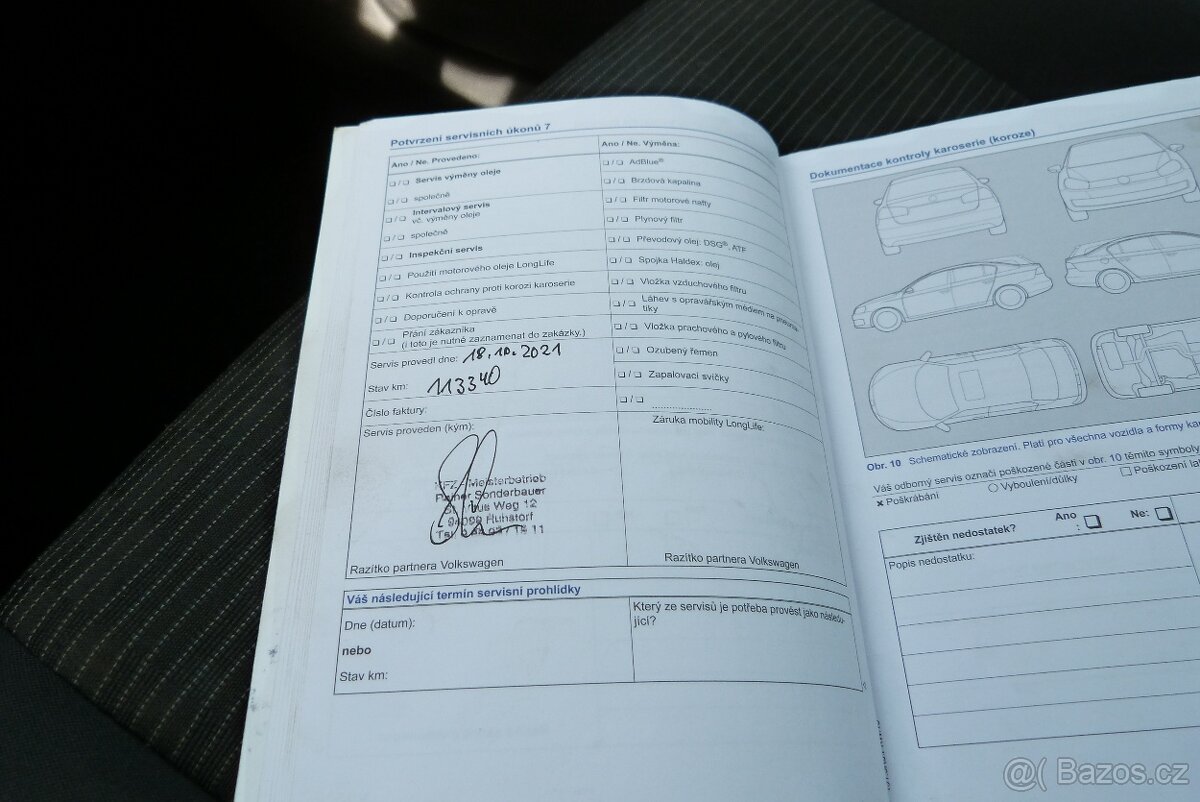 Potvrzení servisních úkonů 7
Ano / Ne. Provedeno:
❏ / ❏ Servis výměny oleje
❏ / ❏ společně
❏ / ❏ Intervalový servis
vč. výměny oleje
❏ / ❏ společně
❏ / ❏ Inspekční servis
❏ / ❏ Použití motorového oleje LongLife
❏ / ❏ Kontrola ochrany proti korozi karoserie
❏ / ❏ Doporučení k opravě
❏ / ❏ Přání zákazníka
(i toto je nutné zaznamenat do zakázky.)
Servis provedl dne: 18.10.2021
Stav km: 113340
Číslo faktury:
Servis proveden (kým):
Meisterbetrieb
Sonderbauer
Weg 12
Ruhstorf
Razítko partnera Volkswagen
Ano / Ne. Výměna:
❏ / ❏ AdBlue®
❏ / ❏ Brzdová kapalina
❏ / ❏ Filtr motorové nafty
❏ / ❏ Plynový filtr
❏ / ❏ Převodový olej: DSG®, ATF
❏ / ❏ Spojka Haldex: olej
❏ / ❏ Vložka vzduchového filtru
❏ / ❏ Láhev s opravářským médiem na pneuma-
tiky
❏ / ❏ Vložka prachového a pylového filtru
❏ / ❏ Ozubený řemen
❏ / ❏ Zapalovací svíčky
❏ / ❏
Záruka mobility LongLife:
Razítko partnera Volkswagen
Váš následující termín servisní prohlídky
Dne (datum):
nebo
Stav km:
Který ze servisů je potřeba provést jako následu-
jící?
Dokumentace kontroly karoserie (koroze)
Obr. 10 Schematické zobrazení. Platí pro všechna vozidla a formy
Váš odborný servis označí poškozené části v obr. 10 těmito symboly
✕ Poškrábání ○ Vyboulení/důlky ❏ Poškození
Zjištěn nedostatek? Ano : ❏ Ne: ❏
Popis nedostatku:
@( Bazos.cz